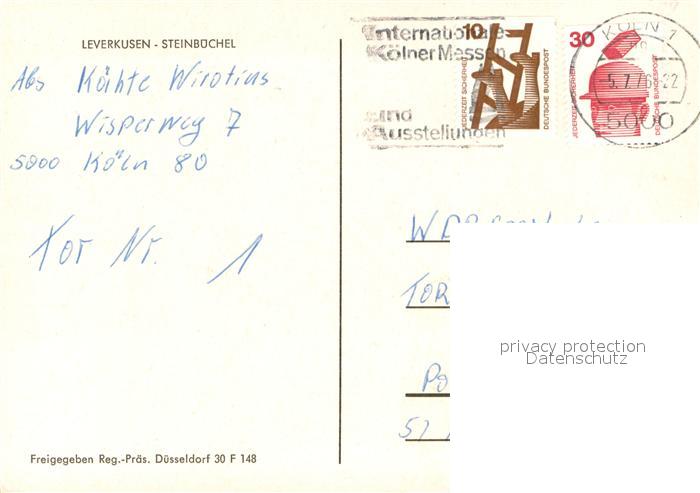 LEVERKUSEN - STEINBÜCHEL
Abs Käthe Wirotius
Wisperweg 7
5000 Köln 80
Tor Nr. 1
Freigegeben Reg.-Präs. Düsseldorf 30 F 148
Internationale
Kölner Messen
und
Ausstellungen
10
JEDERZEIT SICHERHEIT
DEUTSCHE BUNDESPOST
30
JEDERZEIT SICHERHEIT
DEUTSCHE BUNDESPOST
KÖLN 1
5.7.76-22
5000
TOR
Po
privacy protection
Datenschutz